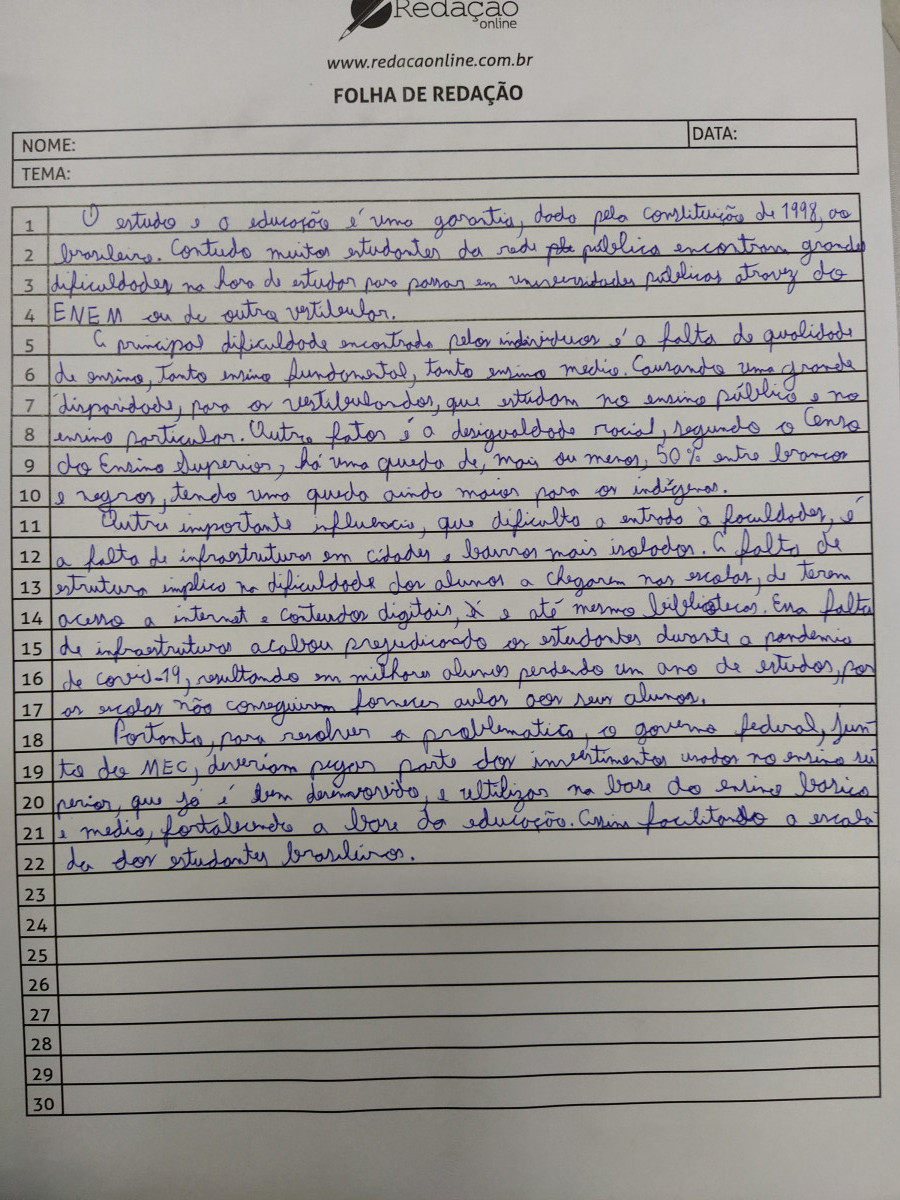 Redação
online
www.redacaonline.com.br
FOLHA DE REDAÇÃO
NOME:
DATA:
TEMA:
1 O estudo e a educação é uma garantia, dada pela constituição de 1998, ao
2 brasileiro. Contudo muitos estudantes da rede pública encontram grande
3 dificuldades na hora de estudar para passar em universidades públicas atravez do
4 ENEM ou de outro vestibular.
5 A principal dificuldade encontrada pelos individuos é a falta de qualidade
6 de ensino, tanto ensino fundamental, tanto ensino medio. Causando uma grande
7 disparidade, para os vestibulandos, que estudam no ensino público e no
8 ensino particular. Outro fator é a desigualdade racial, segundo o Censo
9 do Ensino Superior, há uma queda de, mais ou menos, 50% entre brancos
10 e negros, tendo uma queda ainda maior para os indígenas.
11 Outra importante influencia, que dificulta a entrada à faculdades, é
12 a falta de infraestrutura em cidades e bairros mais isolados. A falta de
13 estrutura implica na dificuldade dos alunos a chegarem nas escolas, de terem
14 acesso a internet e conteudos digitais, e até mesmo bibliotecas. Essa falta
15 de infraestrutura acabou prejudicando os estudantes durante a pandemia
16 de covid-19, resultando em milhares alunos perdendo um ano de estudos, por
17 as escolas não conseguirem fornecer aulas aos seus alunos.
18 Portanto, para resolver a problematica, o governo federal, jun
19 to do MEC, deveriam pegar parte dos investimentos usados no ensino su
20 perior, que já é bem desenvovido, e ultilizar na base do ensino basico
21 e medio, fortalecendo a base da educação. Assim facilitando a escala
22 da dos estudantes brasileiros.
23
24
25
26
27
28
29
30